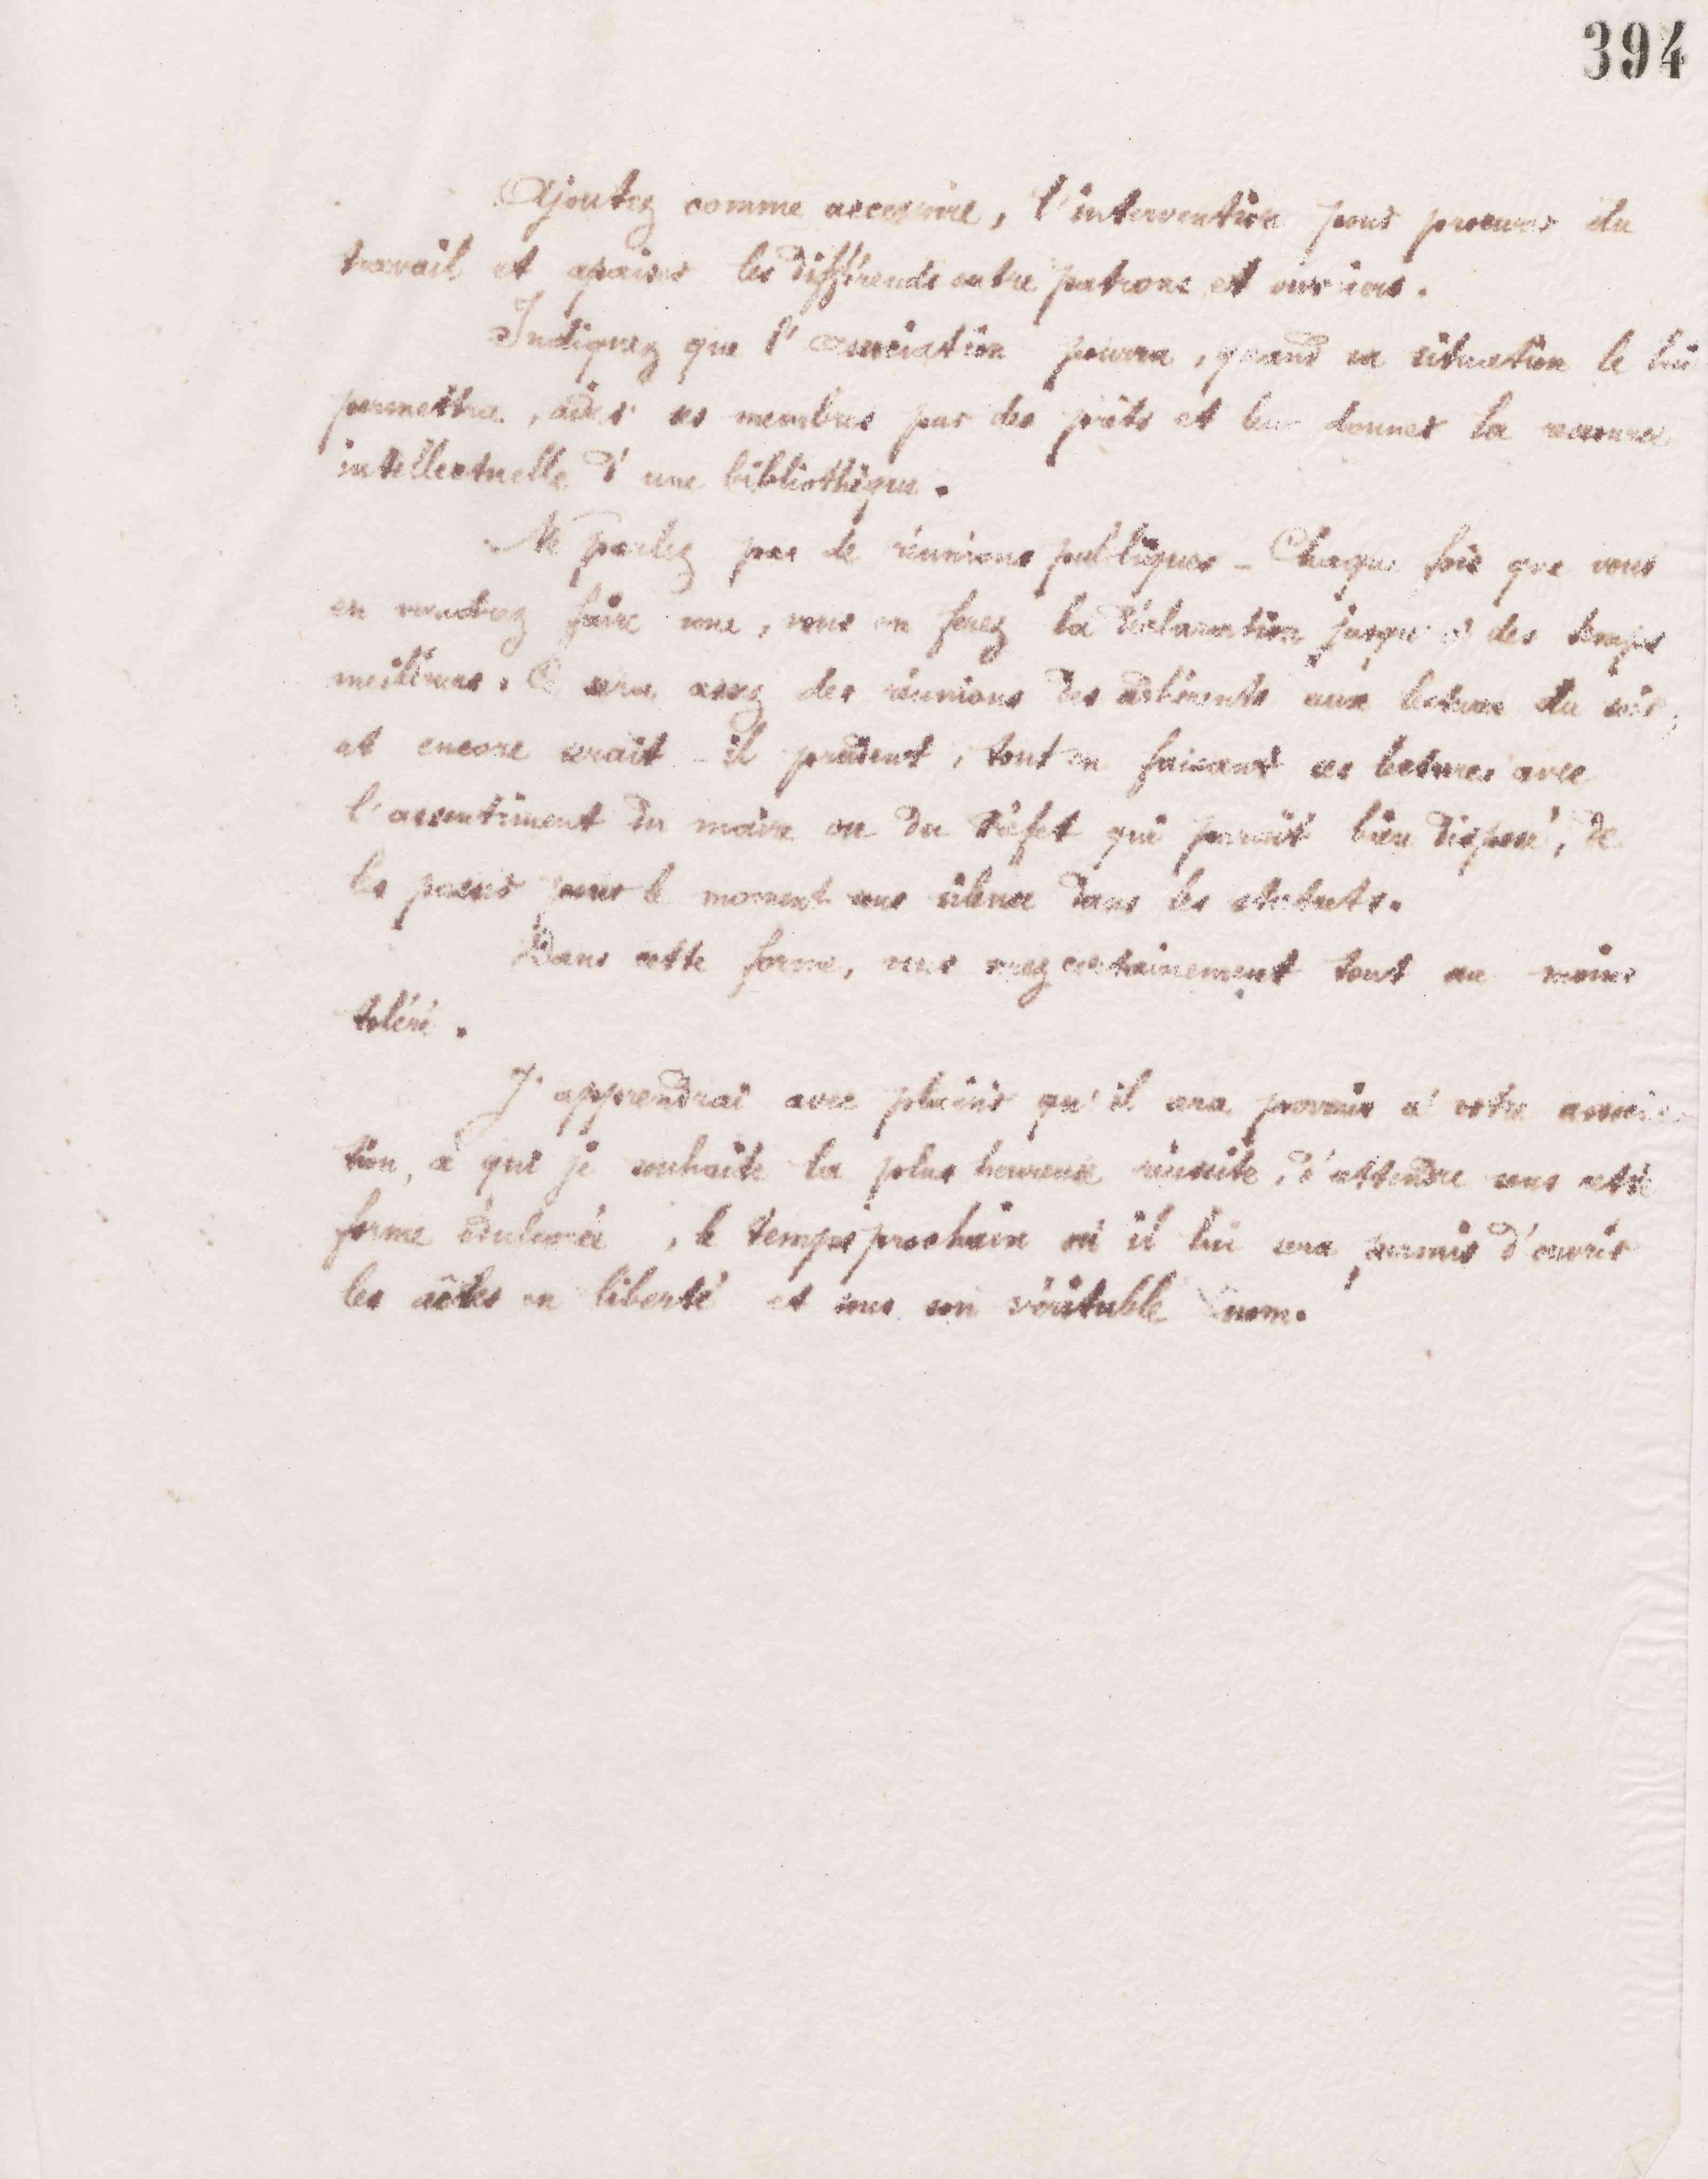 394
Ajoutez comme accessoire, l'intervention pour procurer du
travail et apaiser les différends entre patrons et ouvriers.
Indiquez que l'association pourra, quand sa situation le lui
permettra, aider ses membres par des prêts et leur donner la ressource
intellectuelle d'une bibliothèque.
Ne parlez pas de réunions publiques - Chaque fois que vous
en voudrez faire une, vous en ferez la déclaration jusqu'à des temps
meilleurs. Ce sera assez des réunions des adhérents aux lectures du soir,
et encore serait-il prudent, tout en faisant ces lectures avec
l'assentiment du maire ou du Préfet qui paraît bien disposé, de
les passer pour le moment sous silence dans les statuts.
Dans cette forme, vous serez certainement tout au moins
toléré.
J'apprendrai avec plaisir qu'il sera provenu à votre associa
tion, à qui je souhaite la plus heureuse réussite, d'attendre sous cette
forme édulcorée, le temps prochain où il lui sera permis d'ouvrir
les aîles en liberté et sous son véritable nom.